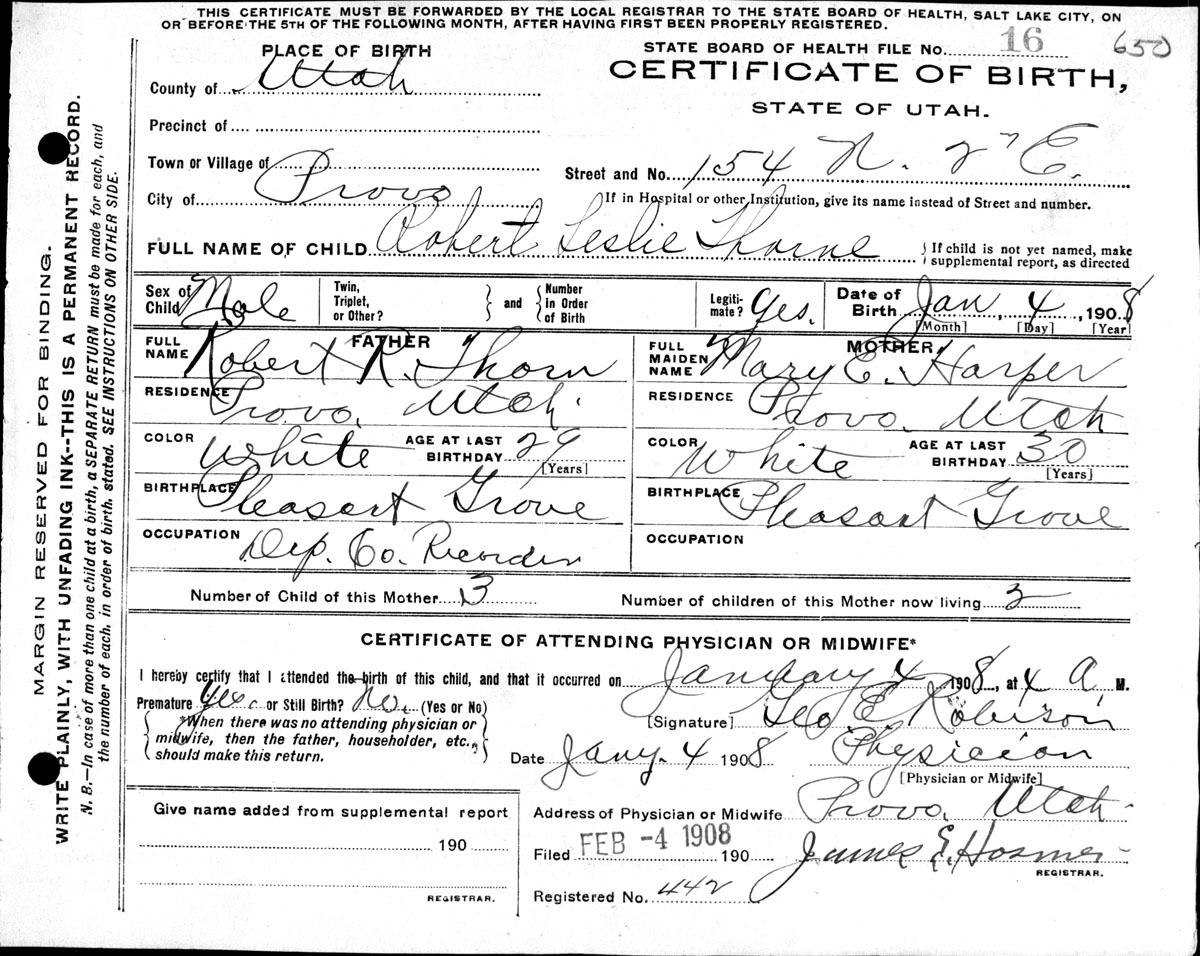 THIS CERTIFICATE MUST BE FORWARDED BY THE LOCAL REGISTRAR TO THE STATE BOARD OF HEALTH, SALT LAKE CITY, ON
OR BEFORE THE 5TH OF THE FOLLOWING MONTH, AFTER HAVING FIRST BEEN PROPERLY REGISTERED.
PLACE OF BIRTH
STATE BOARD OF HEALTH FILE No. 16 650
County of Utah
CERTIFICATE OF BIRTH,
STATE OF UTAH.
Precinct of
Town or Village of
Street and No. 154 N. 2" E.
City of Provo
If in Hospital or other Institution, give its name instead of Street and number.
FULL NAME OF CHILD Robert Leslie Thorne
{If child is not yet named, make
supplemental report, as directed
Sex of Child Male
Twin, Triplet, or Other? } and { Number in Order of Birth
Legiti-mate? Yes.
Date of Birth Jan. 4, 1908
[Month] [Day] [Year]
FATHER
FULL NAME Robert R. Thorn
RESIDENCE Provo, Utah.
COLOR White AGE AT LAST BIRTHDAY 29
[Years]
BIRTHPLACE Pleasant Grove
OCCUPATION Dep. Co. Recorder
MOTHER
FULL MAIDEN NAME Mary E. Harper
RESIDENCE Provo, Utah
COLOR White AGE AT LAST BIRTHDAY 30
[Years]
BIRTHPLACE Pleasant Grove
OCCUPATION
Number of Child of this Mother 3 Number of children of this Mother now living 2
CERTIFICATE OF ATTENDING PHYSICIAN OR MIDWIFE*
I hereby certify that I attended the birth of this child, and that it occurred on January 4 1908, at 4 A, M.
Premature Yes. or Still Birth? No. (Yes or No)
*When there was no attending physician or
midwife, then the father, householder, etc.,
should make this return.
[Signature] Geo. E. Robison
Date Jany. 4 1908 Physician
[Physician or Midwife]
Give name added from supplemental report
190
REGISTRAR.
Address of Physician or Midwife Provo, Utah.
Filed FEB -4 1908 190 James E. Hosmer
REGISTRAR.
Registered No. 442
MARGIN RESERVED FOR BINDING.
WRITE PLAINLY, WITH UNFADING INK--THIS IS A PERMANENT RECORD.
N. B.—In case of more than one child at a birth, a SEPARATE RETURN must be made for each, and
the number of each, in order of birth, stated. SEE INSTRUCTIONS ON OTHER SIDE.